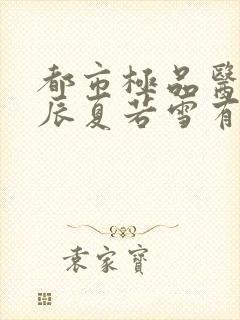 都市極品醫
辰夏若雪有
袁家寶